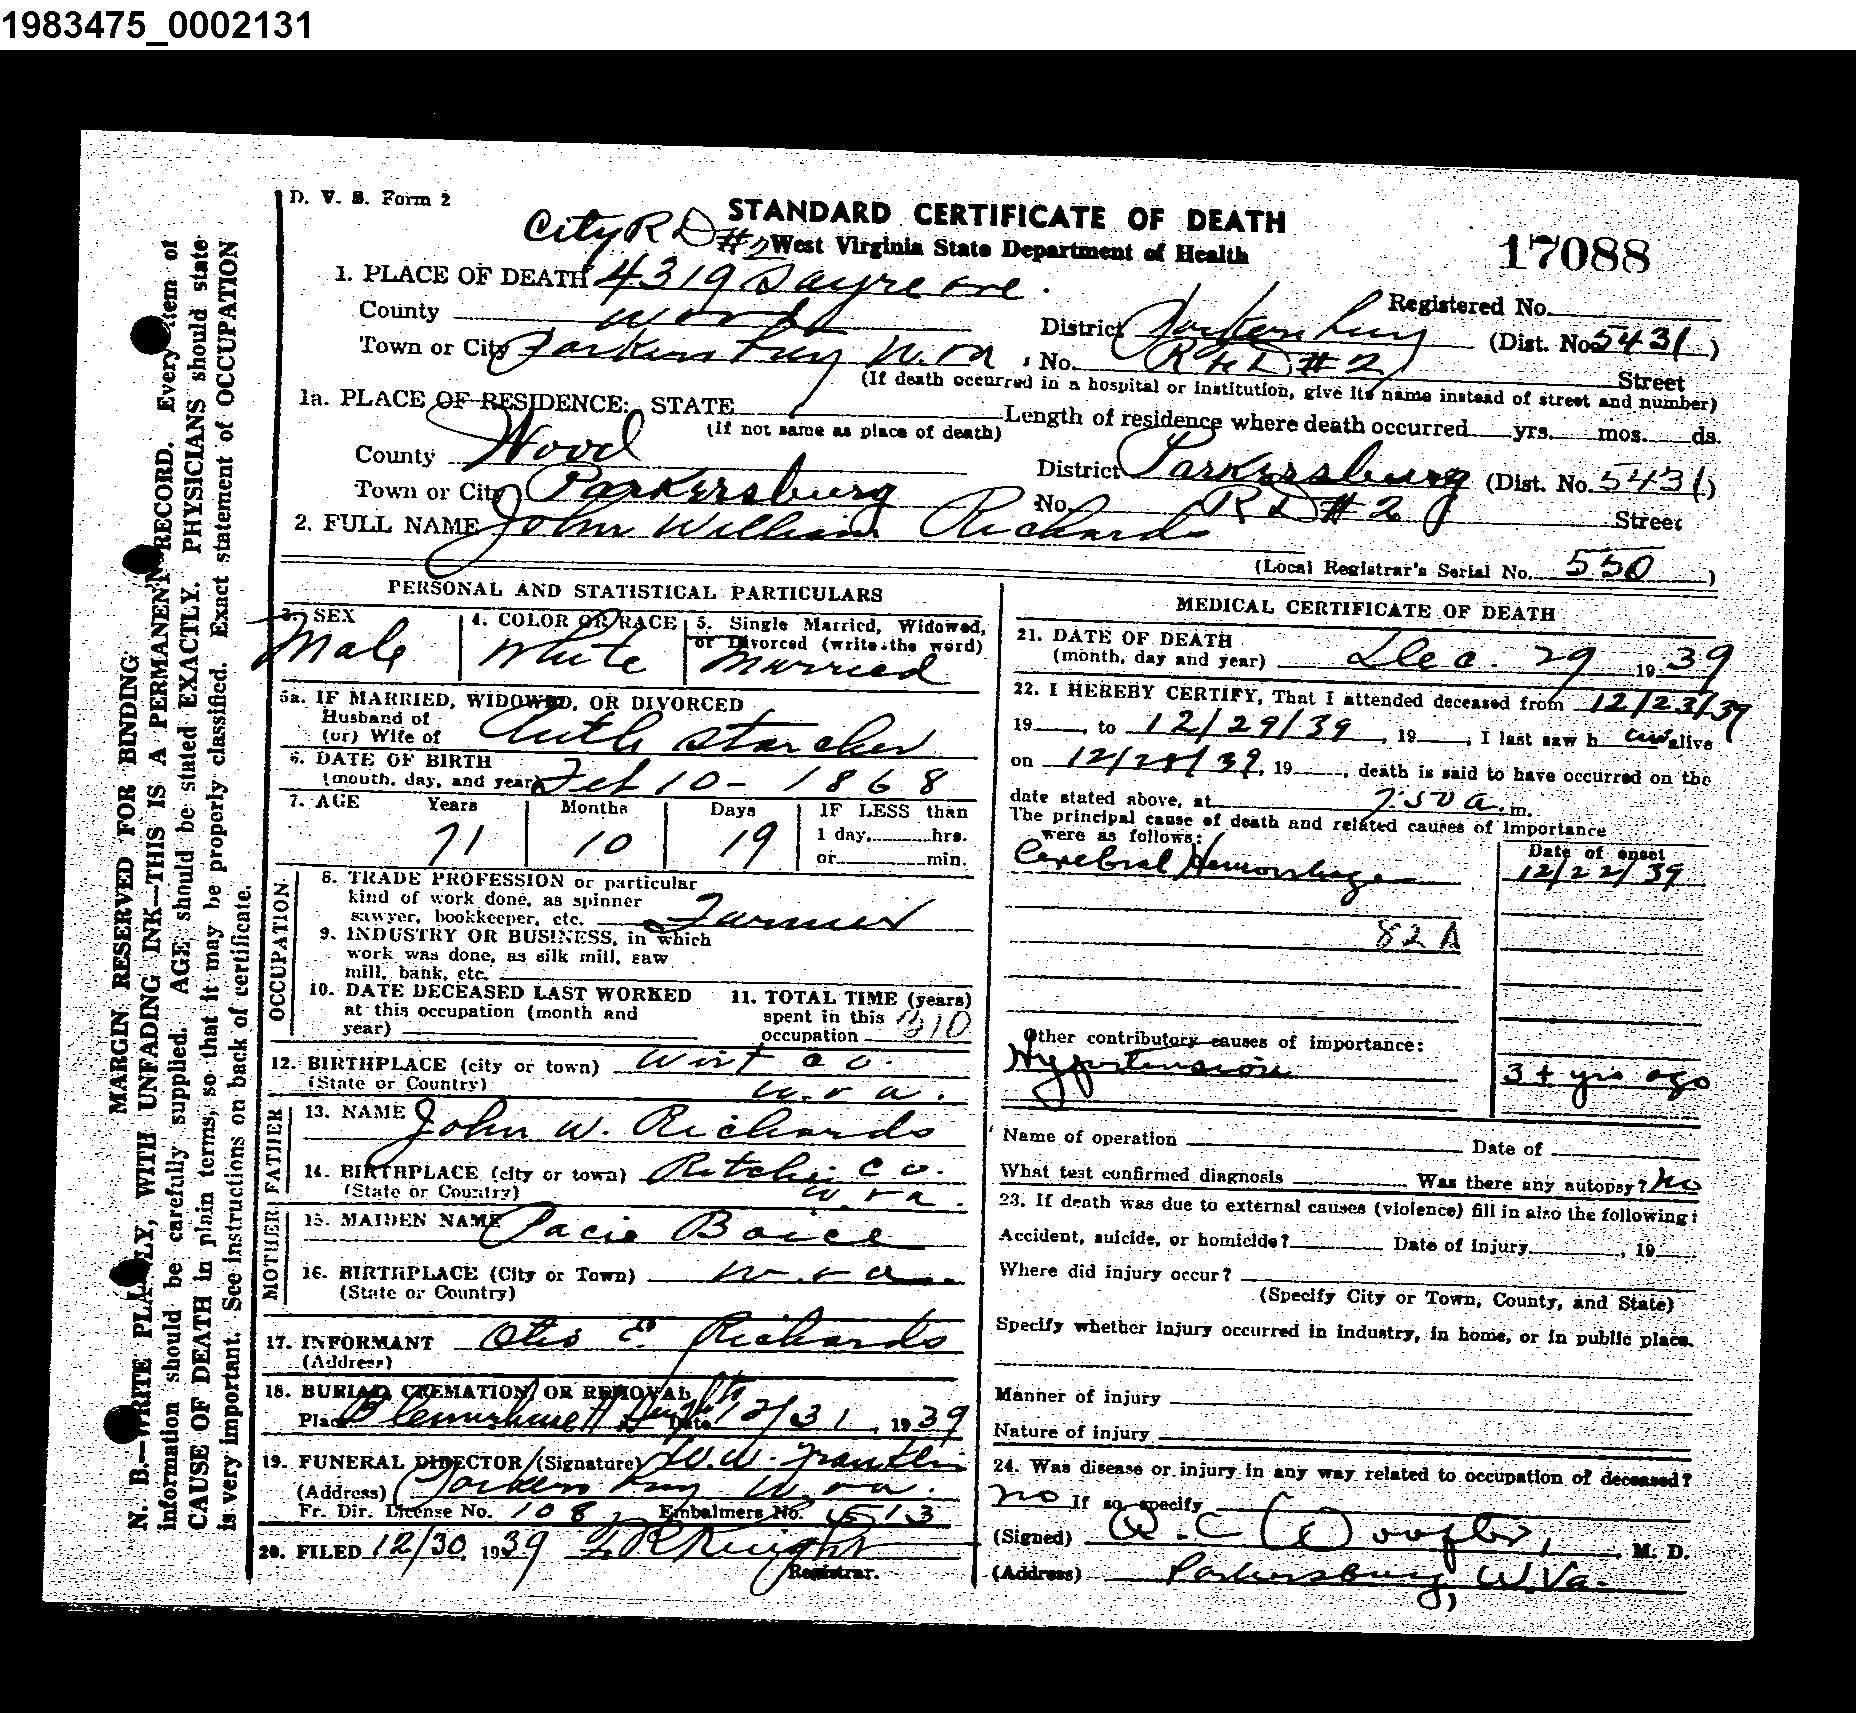 1983475_0002131
D. V. S. Form 2
STANDARD CERTIFICATE OF DEATH
City R D #2 West Virginia State Department of Health
17088
1. PLACE OF DEATH 4319 Sayre ave.
Registered No.
County Wood District Parkersburg (Dist. No. 5431)
Town or City Parkersburg W. va , No. R F D #2 Street
(If death occurred in a hospital or institution, give its name instead of street and number)
1a. PLACE OF RESIDENCE: STATE Length of residence where death occurred yrs. mos. ds.
(If not same as place of death)
County Wood District Parkersburg (Dist. No. 5431)
Town or City Parkersburg No. R D #2 Street
2. FULL NAME John William Richards
(Local Registrar's Serial No. 550 )
PERSONAL AND STATISTICAL PARTICULARS
3. SEX Male
4. COLOR OR RACE White
5. Single Married, Widowed,
or Divorced (write the word)
Married
5a. IF MARRIED, WIDOWED, OR DIVORCED
Husband of
(or) Wife of Ruth Starcher
6. DATE OF BIRTH
(month, day, and year) Feb 10 - 1868
7. AGE Years Months Days IF LESS than
71 10 19 1 day, hrs.
or min.
OCCUPATION
8. TRADE PROFESSION or particular
kind of work done, as spinner
sawyer, bookkeeper, etc. Farmer
9. INDUSTRY OR BUSINESS, in which
work was done, as silk mill, saw
mill, bank, etc.
10. DATE DECEASED LAST WORKED
at this occupation (month and
year)
11. TOTAL TIME (years)
spent in this
occupation
12. BIRTHPLACE (city or town) Wirt Co.
(State or Country) W. va.
FATHER
13. NAME John W. Richards
14. BIRTHPLACE (city or town) Ritchie Co.
(State or Country) W. va.
MOTHER
15. MAIDEN NAME Pacie Boice
16. BIRTHPLACE (City or Town) W. va.
(State or Country)
17. INFORMANT Otis E. Richards
(Address)
18. BURIAL, CREMATION, OR REMOVAL
Place Blennerhassett Date 12/31, 1939
19. FUNERAL DIRECTOR (Signature) W. W.
(Address) Parkersburg W. va.
Fr. Dir. License No. 108 Embalmers No. 1513
20. FILED 12/30, 1939 R Knight
Registrar.
MEDICAL CERTIFICATE OF DEATH
21. DATE OF DEATH
(month, day and year) Dec. 29 19 39
22. I HEREBY CERTIFY, That I attended deceased from 12/23/39
19 , to 12/29/39, 19 , I last saw h im alive
on 12/28/39, 19 , death is said to have occurred on the
date stated above, at 7:50 a. m.
The principal cause of death and related causes of importance
were as follows:
Date of onset
Cerebral Hemorrhage 12/22/39
82 A
Other contributory causes of importance:
Hypertension 3+ yrs ago
Name of operation Date of
What test confirmed diagnosis Was there any autopsy? No
23. If death was due to external causes (violence) fill in also the following:
Accident, suicide, or homicide? Date of Injury , 19
Where did injury occur?
(Specify City or Town, County, and State)
Specify whether injury occurred in industry, in home, or in public place.
Manner of injury
Nature of injury
24. Was disease or injury in any way related to occupation of deceased?
no If so, specify
(Signed) M. D.
(Address) Parkersburg, W. Va.
MARGIN RESERVED FOR BINDING
N. B.—WRITE PLAINLY, WITH UNFADING INK—THIS IS A PERMANENT RECORD. Every item of
information should be carefully supplied. AGE should be stated EXACTLY. PHYSICIANS should state
CAUSE OF DEATH in plain terms, so that it may be properly classified. Exact statement of OCCUPATION
is very important. See instructions on back of certificate.